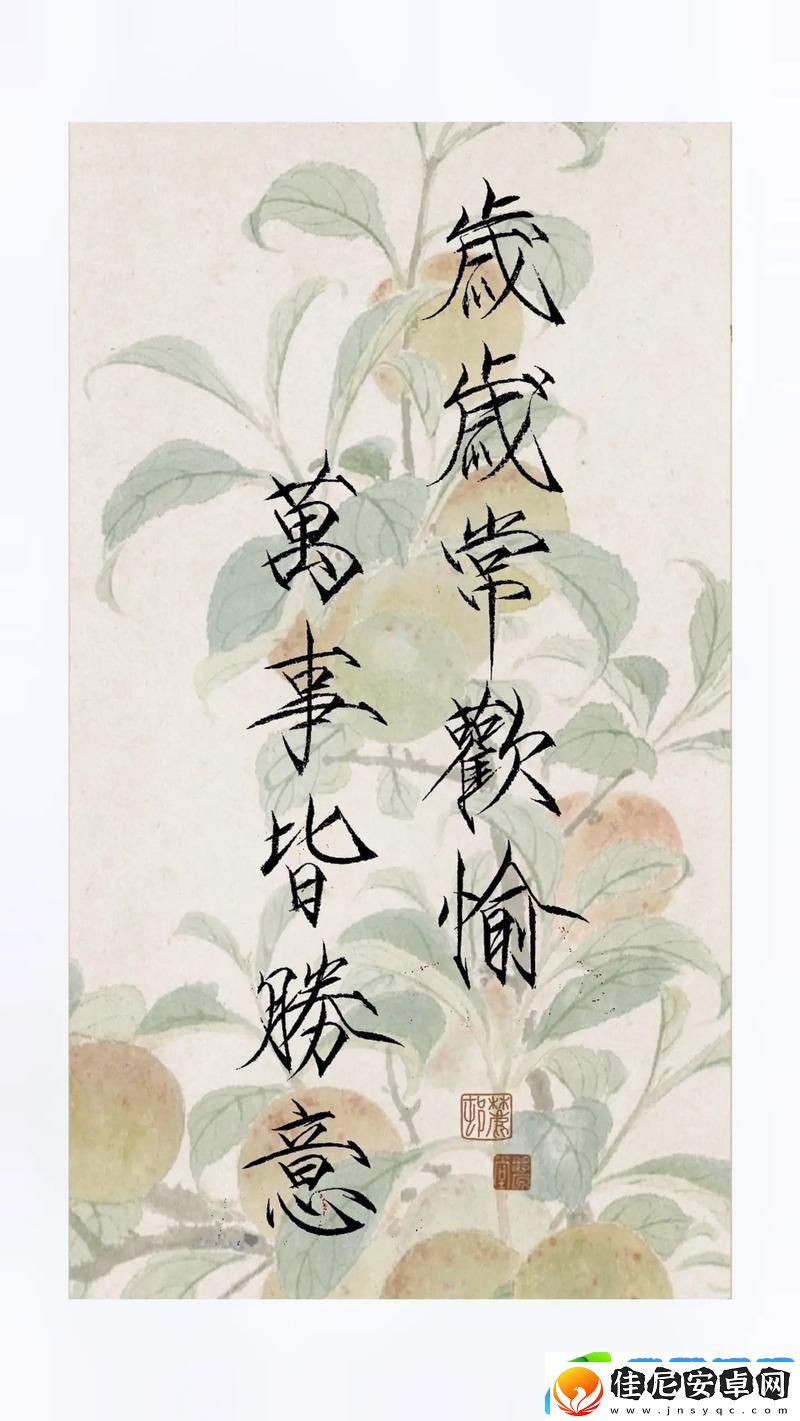 歲歲常歡愉
萬事皆勝意
佳尼安卓网
www.jnsyqc.com